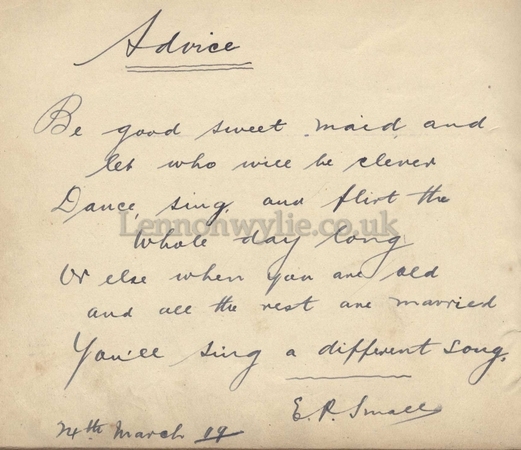 Advice
Be good sweet maid and
let who will be clever
Dance, sing, and flirt the
Lennonwylie.co.uk
whole day long
Or else when you are old
and all the rest are married
You'll sing a different song.
E. R. Small
24th March 19